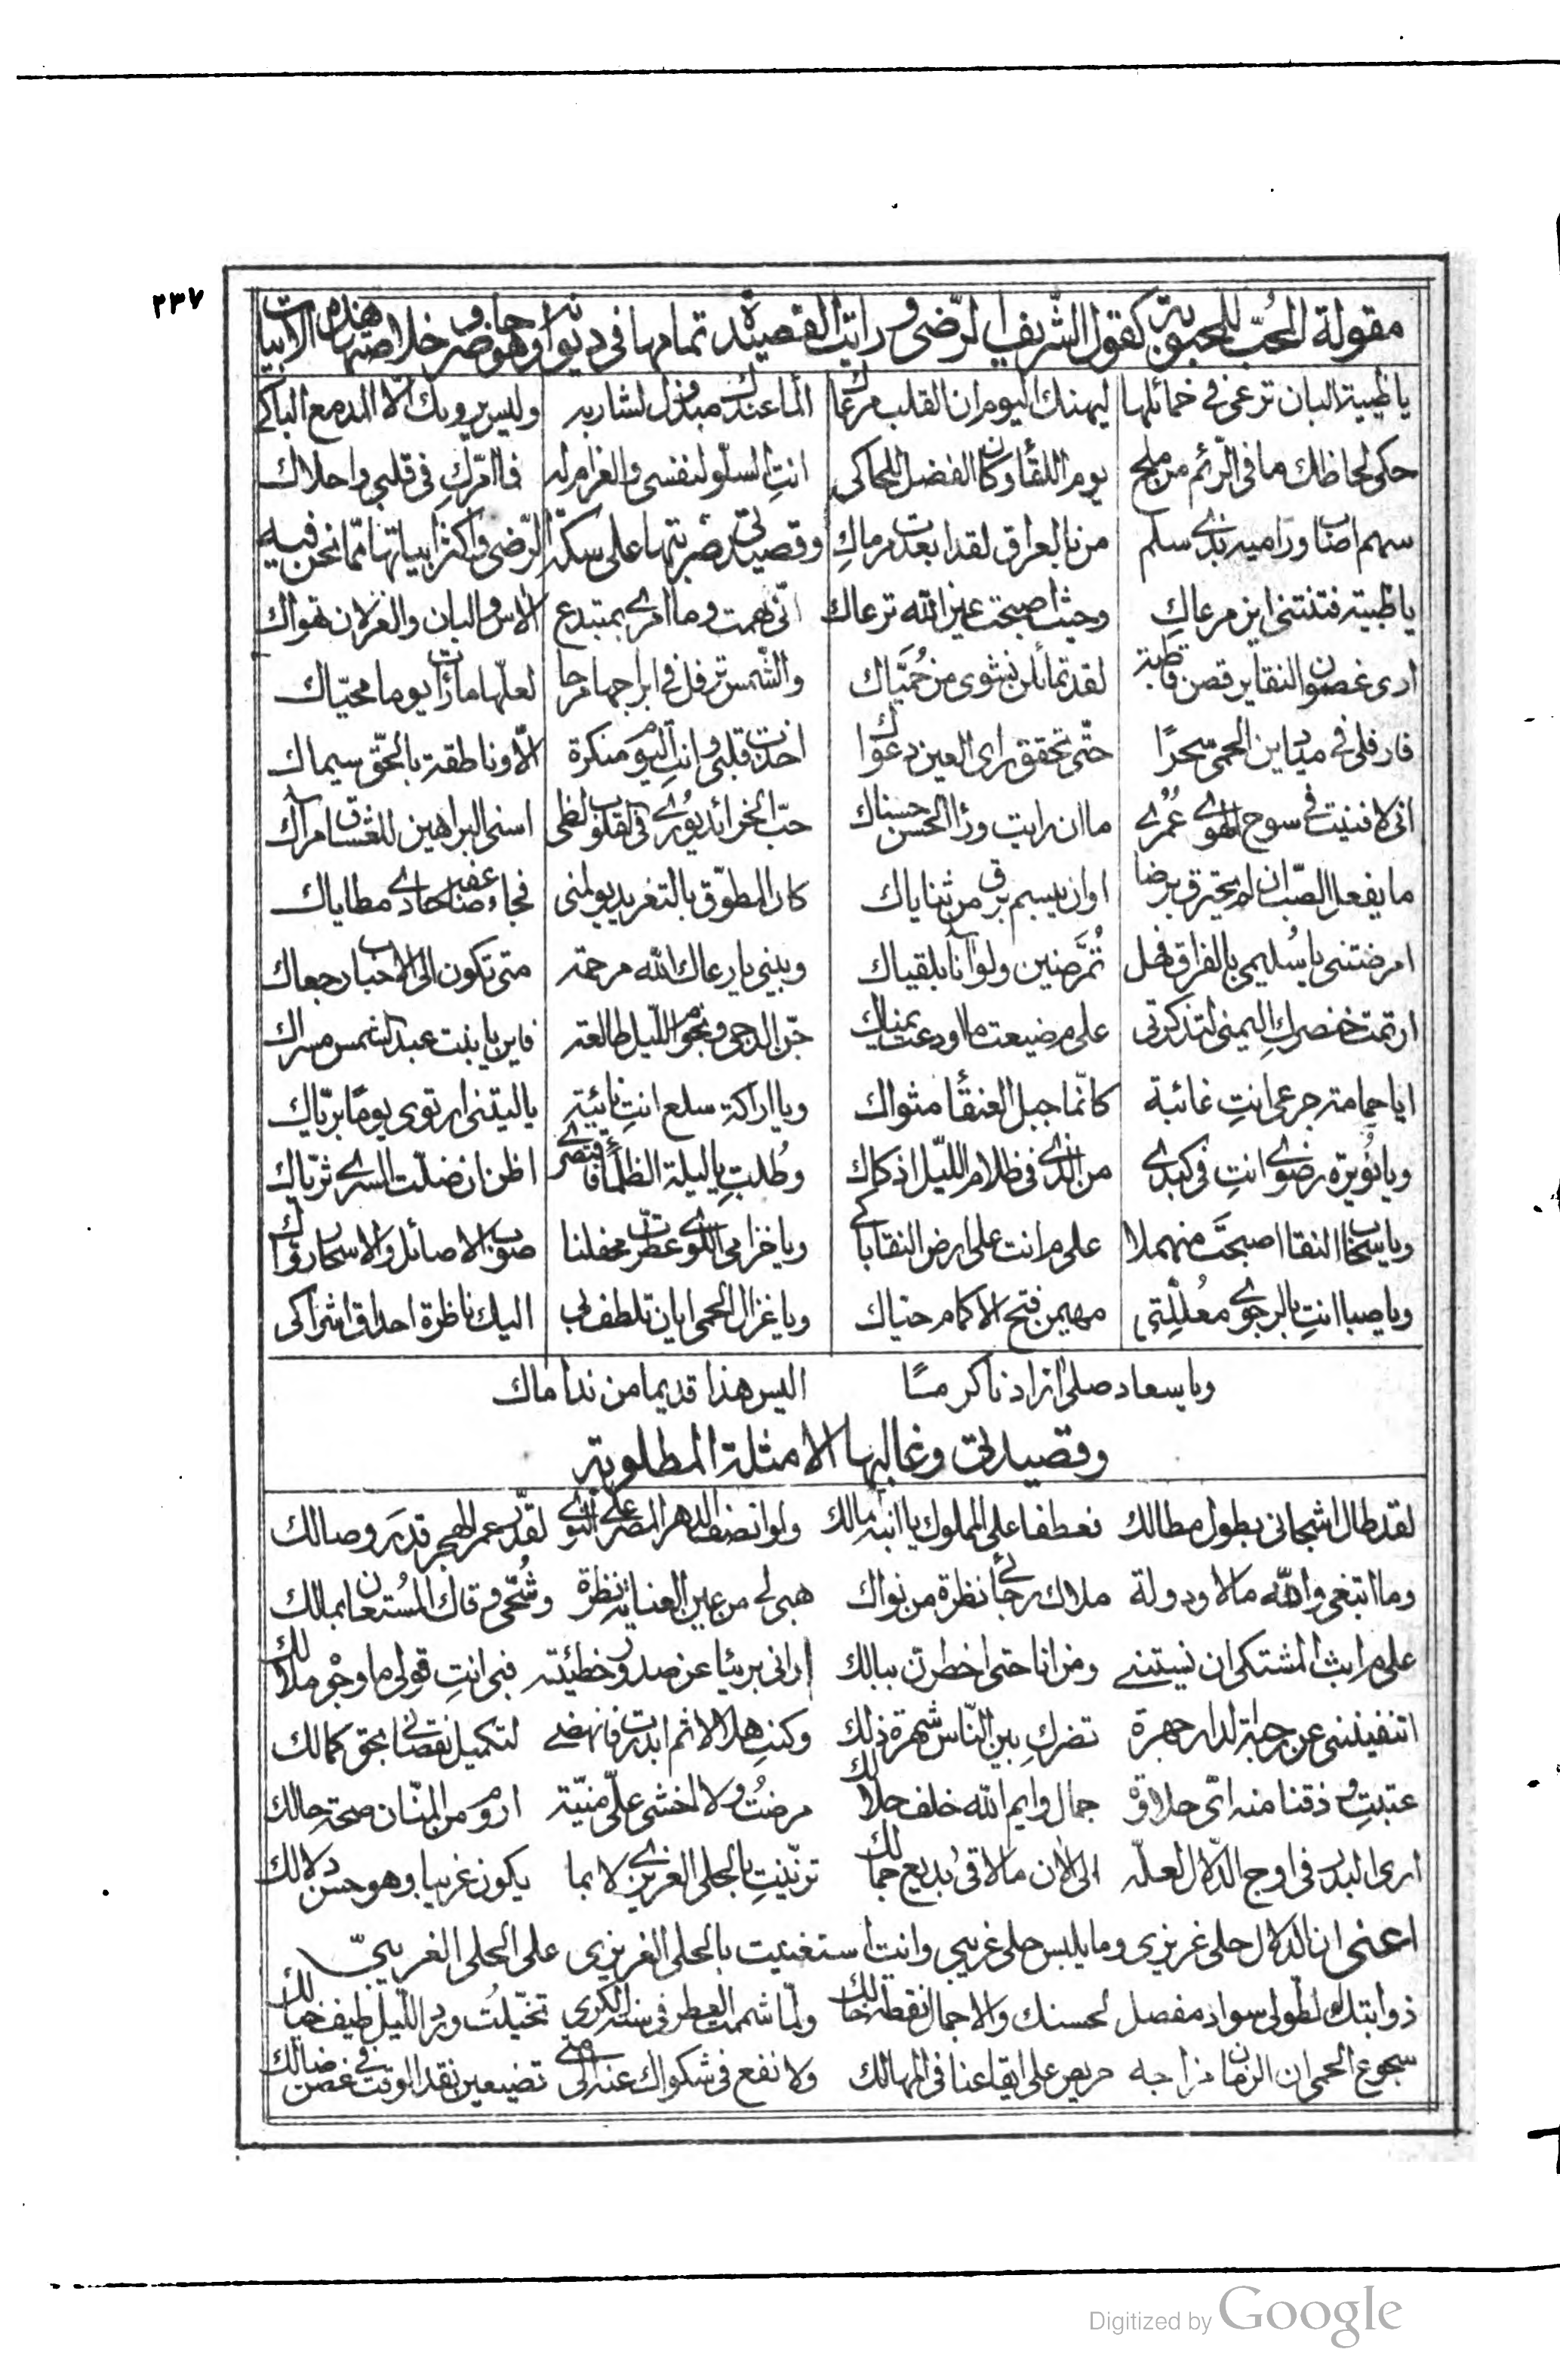 ٢٣٧
مقولة المُحبّ للمحبوبة كقول الشّريف الرّضى ورايت القصيدة تمامها فى ديوانه وهو خلاصتها هذه الابيات
يا ظبية البان ترعى فى خمائلها ليهنك اليوم ان القلب مرعاك الماء عندك مبذول لشاربه وليس يرويك الّا المدمع الباكى
حكى لحاظك ما فى الرّئم من ملح يوم اللقاء وكان الفضل للحاكى انتِ السلوّ لنفسى والغرام له فما امرّكِ فى قلبى واحلاك
سهم اصاب وراميه بذى سلم من بالعراق لقد ابعدت مرماكِ وقصيدتى ضربتها على سكّة الرّضى واكثر ابياتها ممّا نحن فيه
يا ظبية فتنتنى اين مرعاكِ وحيث اصبحت عين الله ترعاك انّى همت وما امرى بمبتدع الاس والبان والغزلان تهواك
ارى غصون النقا يرقصن قاطبة لقد تمائلن نشوى من حُميّاك والشّمس ترفل فى ابراجها مرحا لعلّها ما رات يوما محيّاك
فارفلى فى ميادين الحمى سحرًا حتّى تحقق راى العين دعواك اخذت قلبى وانتِ اليوم منكرة الّا وناطقة بالحقّ سيماك
انى لافنيت فى سوح الهوى عُمُرى ما ان رايت وربّ الحسن حسناك حبّ الخرائد يُورى فى القلوب لظى اسنى البراهين للغسّان امراك
ما يفعل الصّب ان لم يحترق برضا او ان يبسم برق من ثناياك كان المطوّق بالتغريد يولمنى فجاء عفير صناحادى مطاياك
امرضتنى يا سُليمى بالفراق فهل تُمَّرضين ولو آنا بلقياك وبينى يا رعاك الله مرحمة متى تكون الى الاحباب رجعاك
ارتمت خنصركِ اليمنى لتذكرتى على م ضيعت ما اودعت يمناك جنّ الدجى ونجوم اللّيل طالعة فاين يا بنت عبد الشمس مسراك
ايا حمامة جرعى انتِ غائبة كانّما جبل العنقاء مثواك ويا اراكة سلع انتِ نابئية يا ليتنى ارتوى يومًا بريّاك
ويا نُويرة رضوى انتِ فى كبدى من الذى فى ظلام اللّيل اذكاك وطُلتِ يا ليلة الظلماء فاقتصرى اظن ان ضلّت السرى ثريّاك
ويا سحاب النقا اصبحتَ منهملا على م انت على ارض النقا باكى ويا خزامى اللوى عطّرت محفلنا صوب الاصائل والاسحار روّاك
ويا صبا انتِ بالرجوى معلّلتى مهيمن فتح الاكمام حيّاك ويا غزال الحمى ايان تلطف بى اليك ناظرة احداق اشراكى
ويا سعاد صلى ازاد ناكر مسًا اليس هذا قديما من نداماك
وقصيدتى وغالبها الامثلة المطلوبة
لقد طال اشجانى بطول مطالك فعطفا على المملوك يا ابنة مالك ولو انصف الدهر المصر على النوى لقدّر عمر الهجر قدرَ وصالك
وما ابتغى والله مالا ودولة ملاك رجائى نظرة من نوالك هبى لى من عين العناية نظرة وشُحّى وقاك المُستعان بمالك
على م ابث المشتكى ان نسيتنى ومن انا حتى اخطرن ببالك ارانى بريئا عن صدور خطيئة فبى انتِ قولى ما وجوه ملالك
اتنفيننى عن رحبة الدار جهرة تضركِ بين النّاس شهرة ذلك وكنتِ هلالا ثم ابدرت فانهضى لتكميل نقصانى بحق كمالك
عتبتِ وذقنا منه اىّ حلاوة جمال وايم الله خلف جلالك مرضتُ ولا اخشى علىّ منيّة اروم من المنّان صحة حالك
ارى البدر فى اوج الدّلال لعلّه الى الان ما لاقى بديع جمالك تزيّنتِ بالحلى الغريزى لا بما يكون غريبا وهو حسن دلالك
اعنى ان الدلال حلى غريزى وما يلبس حلى غريبى وانت استغنيت بالحلى الغريزى على الحلى الغريبىّ
ذوابتك الطولى سواد مفصل لحسنك والاجمال نقطة خالك ولمّا شممت العطر فى سنة الكرى تخيّلت وبدر اللّيل طيف خيالك
سجوع الحمى ان الزمان مزاجه حريص على ايقاعنا فى المهالك ولا نفع فى شكواك عنه الى متى تضيعين نقد الوقت فى غصن ضالك
Digitized by Google